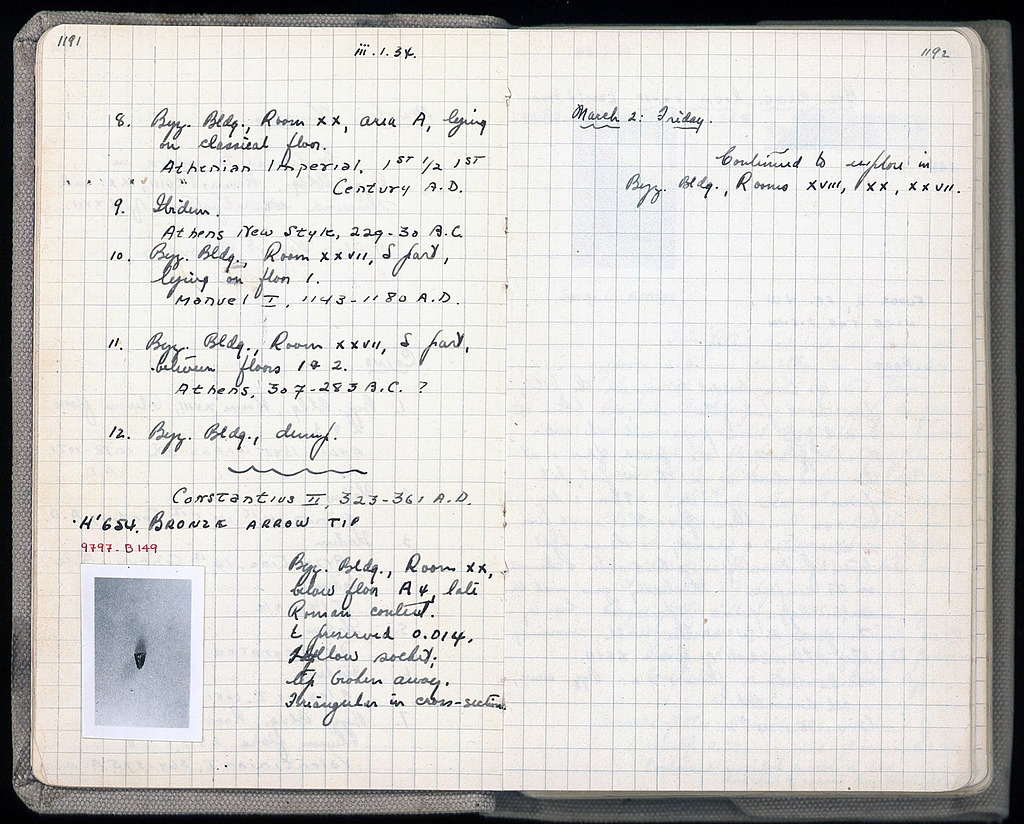 1191
iii.1.34.
8. Byz. Bldg., Room XX, area A, lying
on classical floor.
Athenian Imperial, 1ST 1/2 1ST
Century A.D.
9. Ibidem.
Athens New Style, 229-30 B.C.
10. Byz. Bldg., Room XXVII, S part,
lying on floor 1.
Manuel I, 1143-1180 A.D.
11. Byz. Bldg., Room XXVII, S part,
between floors 1 & 2.
Athens, 307-283 B.C. ?
12. Byz. Bldg., dump.
Constantius II, 323-361 A.D.
H'654. BRONZE ARROW TIP
9797-B149
Byz. Bldg., Room XX,
below floor A4, late
Roman context.
L preserved 0.014.
Hollow socket;
tip broken away.
Triangular in cross-section.
1192
March 2: Friday.
Continued to explore in
Byz. Bldg., Rooms XVIII, XX, XXVII.